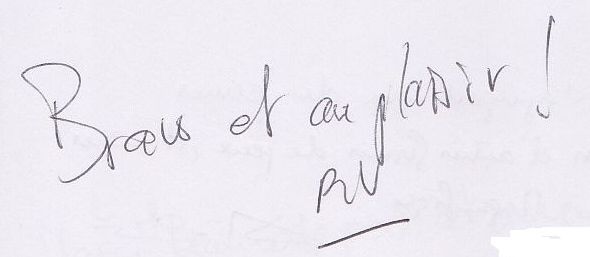 Bravo et au plaisir !
RV